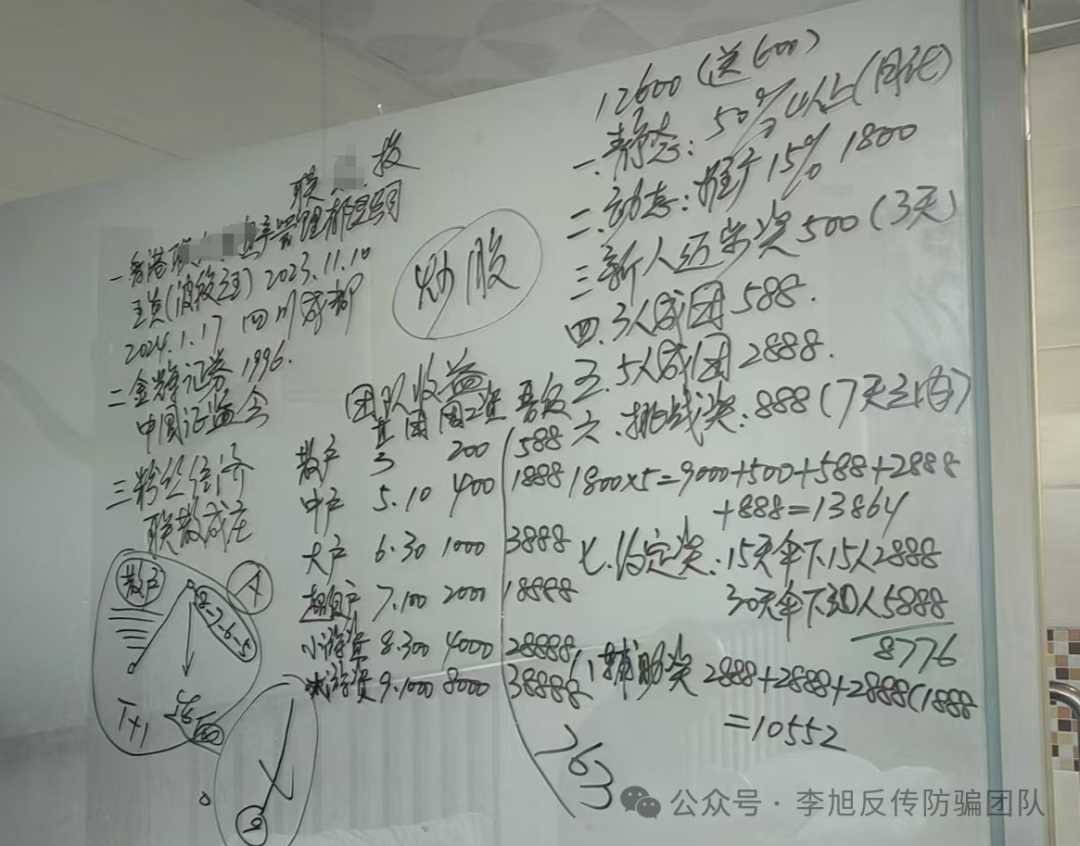 联 投
一香港联 管理有限公司
2023.11.10
2024.1.17 四川成都
二金辉证券1996.
中国证监会
三粉丝经济
联散成庄
散户
A
8-7-6-5
T+1
炒股
团队收益
直 团 周工资 晋级
散户 3 200 588
中户 5.10 400 1888
大户 6.30 1000 3888
超大户 7.100 2000 18888
小游资 8.300 4000 28888
游资 9.1000 8000 38888
12600(送600)
一.静态:50%
二.动态:推广15% 1800
三新人 奖500(3天)
四.3人成团588.
五.5人成团2888.
六.挑战奖:888(7天之内)
1800×5=9000+500+588+2888
+888=13864
七.约定奖:15天伞下15人2888
30天伞下30人5888
8776
八辅助奖2888+2888+2888(1888
=10552
763
公众号·李旭反传防骗团队